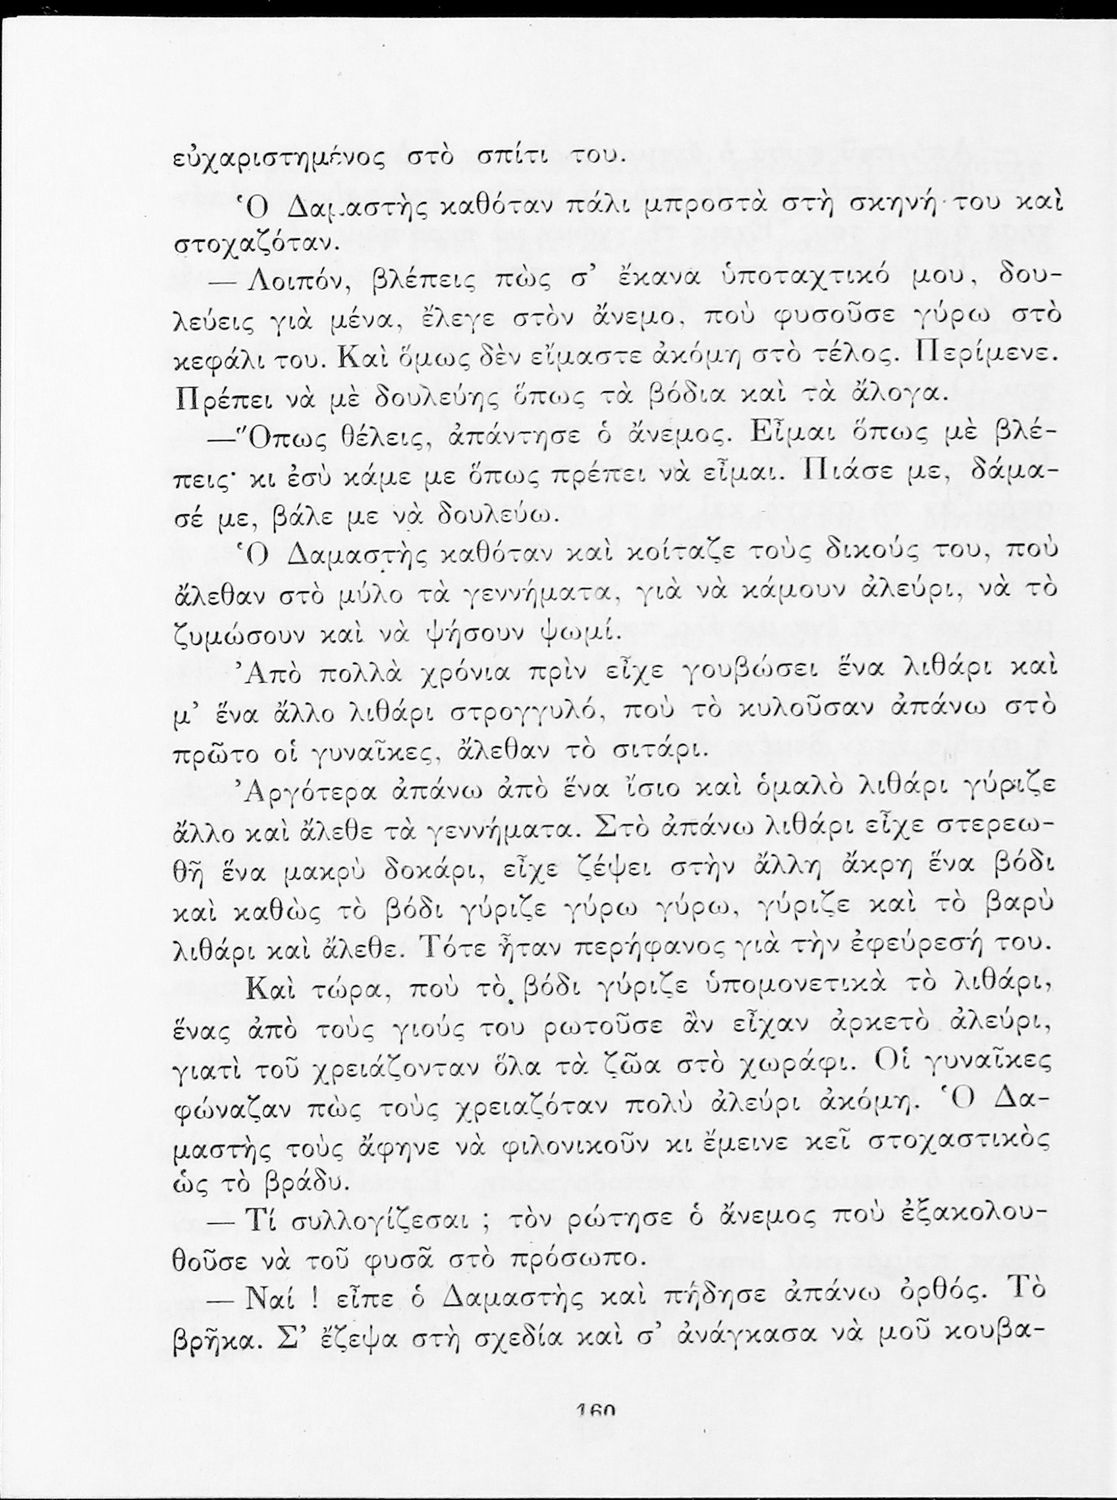 εὐχαριστημένος στὸ σπίτι του.
Ὁ Δαμαστὴς καθόταν πάλι μπροστὰ στὴ σκηνή του καὶ
στοχαζόταν.
— Λοιπόν, βλέπεις πὼς σ' ἔκανα ὑποταχτικό μου, δου-
λεύεις γιὰ μένα, ἔλεγε στὸν ἄνεμο, ποὺ φυσοῦσε γύρω στὸ
κεφάλι του. Καὶ ὅμως δὲν εἴμαστε ἀκόμη στὸ τέλος. Περίμενε.
Πρέπει νὰ μὲ δουλεύῃς ὅπως τὰ βόδια καὶ τὰ ἄλογα.
—Ὅπως θέλεις, ἀπάντησε ὁ ἄνεμος. Εἶμαι ὅπως μὲ βλέ-
πεις· κι ἐσὺ κάμε με ὅπως πρέπει νὰ εἶμαι. Πιάσε με, δάμα-
σέ με, βάλε με νὰ δουλεύω.
Ὁ Δαμαστὴς καθόταν καὶ κοίταζε τοὺς δικούς του, ποὺ
ἄλεθαν στὸ μύλο τὰ γεννήματα, γιὰ νὰ κάμουν ἀλεύρι, νὰ τὸ
ζυμώσουν καὶ νὰ ψήσουν ψωμί.
Ἀπὸ πολλὰ χρόνια πρὶν εἶχε γουβώσει ἕνα λιθάρι καὶ
μ' ἕνα ἄλλο λιθάρι στρογγυλό, ποὺ τὸ κυλοῦσαν ἀπάνω στὸ
πρῶτο οἱ γυναῖκες, ἄλεθαν τὸ σιτάρι.
Ἀργότερα ἀπάνω ἀπὸ ἕνα ἴσιο καὶ ὁμαλὸ λιθάρι γύριζε
ἄλλο καὶ ἄλεθε τὰ γεννήματα. Στὸ ἀπάνω λιθάρι εἶχε στερεω-
θῆ ἕνα μακρὺ δοκάρι, εἶχε ζέψει στὴν ἄλλη ἄκρη ἕνα βόδι
καὶ καθὼς τὸ βόδι γύριζε γύρω γύρω, γύριζε καὶ τὸ βαρὺ
λιθάρι καὶ ἄλεθε. Τότε ἦταν περήφανος γιὰ τὴν ἐφεύρεσή του.
Καὶ τώρα, ποὺ τὸ βόδι γύριζε ὑπομονετικὰ τὸ λιθάρι,
ἕνας ἀπὸ τοὺς γιούς του ρωτοῦσε ἂν εἶχαν ἀρκετὸ ἀλεύρι,
γιατὶ τοῦ χρειάζονταν ὅλα τὰ ζῶα στὸ χωράφι. Οἱ γυναῖκες
φώναζαν πὼς τοὺς χρειαζόταν πολὺ ἀλεύρι ἀκόμη. Ὁ Δα-
μαστὴς τοὺς ἄφηνε νὰ φιλονικοῦν κι ἔμεινε κεῖ στοχαστικὸς
ὡς τὸ βράδυ.
— Τί συλλογίζεσαι ; τὸν ρώτησε ὁ ἄνεμος ποὺ ἐξακολου-
θοῦσε νὰ τοῦ φυσᾶ στὸ πρόσωπο.
— Ναί ! εἶπε ὁ Δαμαστὴς καὶ πήδησε ἀπάνω ὀρθός. Τὸ
βρῆκα. Σ' ἔζεψα στὴ σχεδία καὶ σ' ἀνάγκασα νὰ μοῦ κουβα-
160